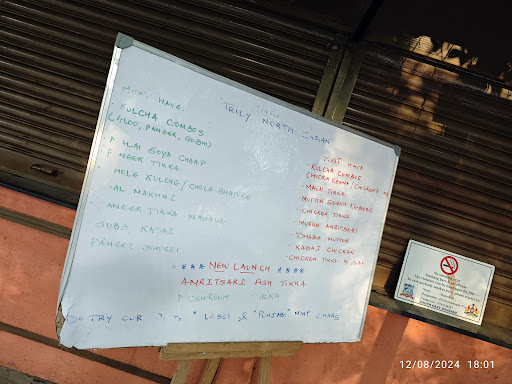 TRULY NORTH INDIAN
MUST HAVE
KULCHA COMBOS
(ALOO, PANEER, GOBHI)
MALAI SOYA CHAAP
PANEER TIKKA
CHOLE KULCHE / CHOLE BHATURE
DAL MAKHNI
PANEER TIKKA MASALA
SUBJI KADAI
PANEER BHURJI
MUST HAVE
KULCHA COMBOS
MALAI TIKKA
MUTTON SEEKH KEBABS
CHICKEN TIKKA
MURGH AMRITSARI
DHABA MUTTON
KADAI CHICKEN
CHICKEN TIKKA MASALA
**** NEW LAUNCH ****
AMRITSARI FISH TIKKA
MUSHROOM TIKKA
DO TRY OUR LASSI & "PUNJABI" MINT CHAAS
12/08/2024 18:01